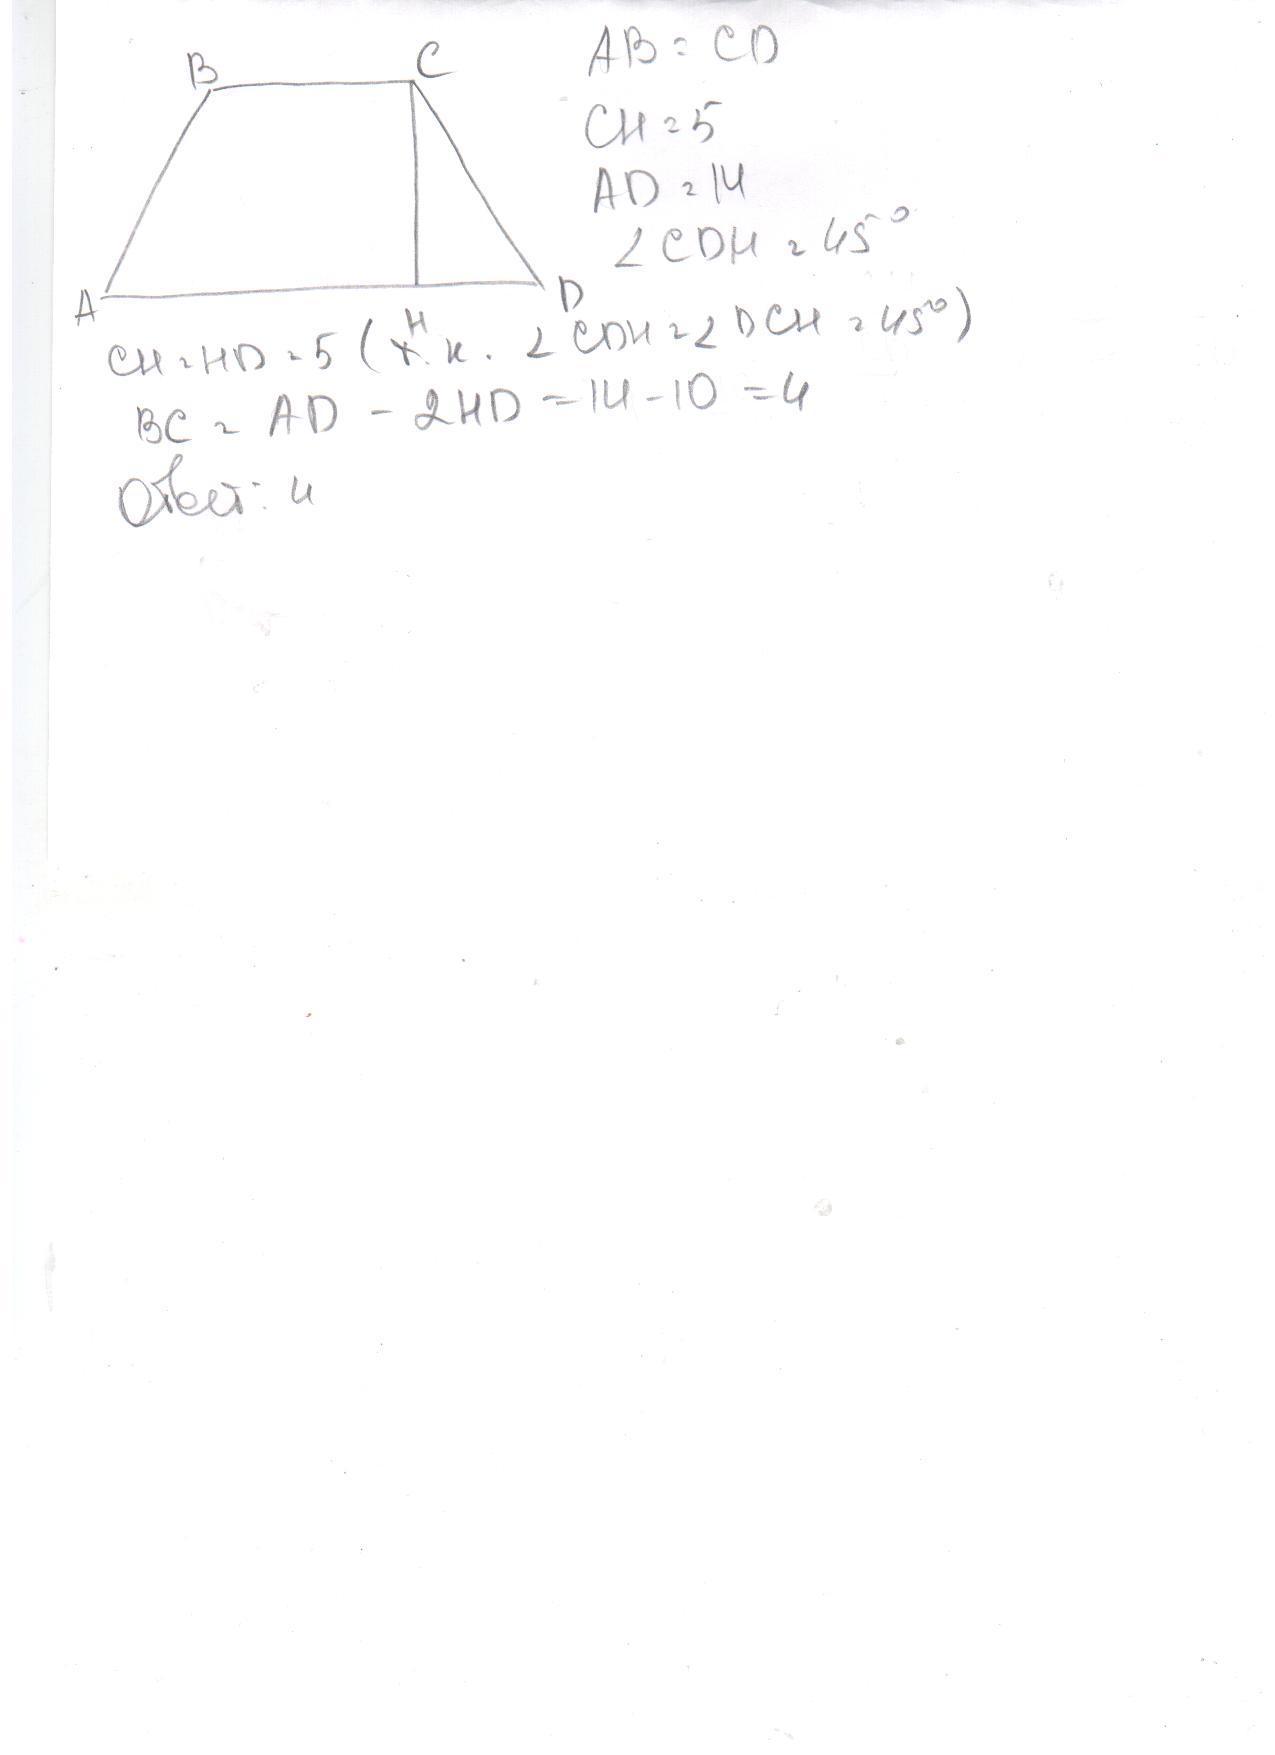 B
C
A
H
D
AB = CD
CH = 5
AD = 14
∠CDH = 45°
CH = HD = 5 (т.к. ∠CDH = ∠DCH = 45°)
BC = AD - 2HD = 14 - 10 = 4
Ответ: 4